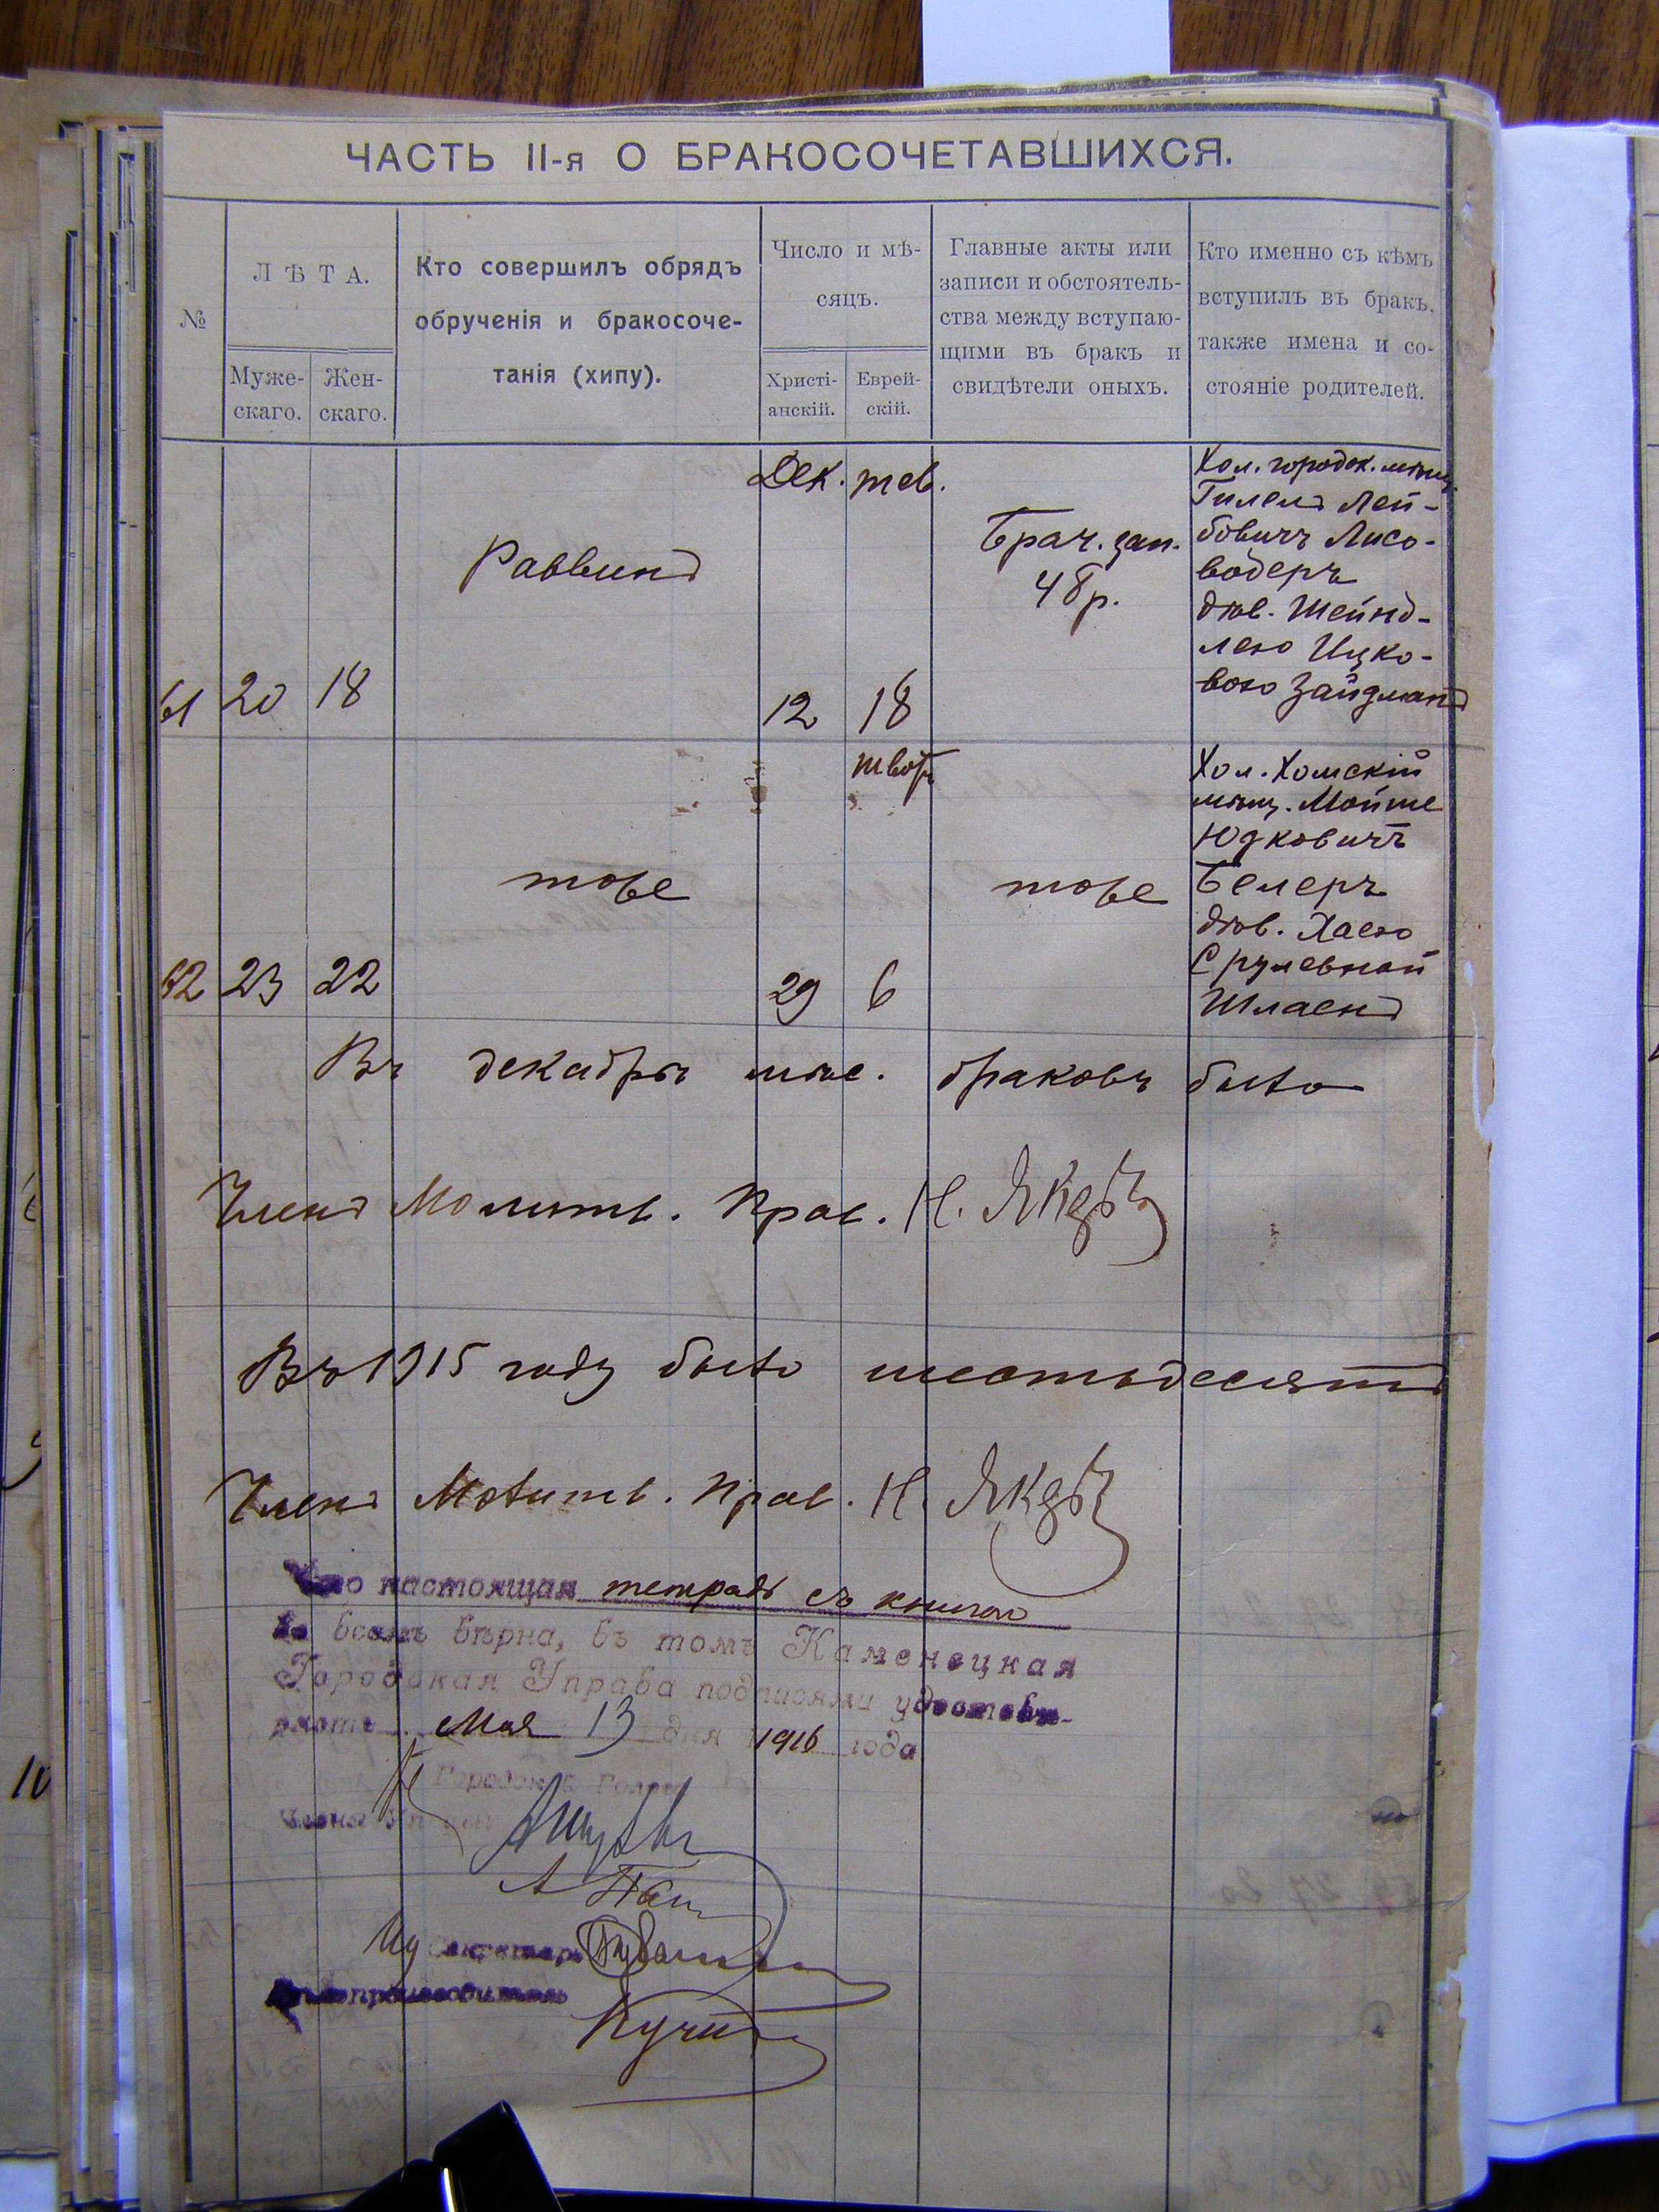 ЧАСТЬ II-я О БРАКОСОЧЕТАВШИХСЯ.
№
ЛѢТА.
Муже-
скаго.
Жен-
скаго.
Кто совершилъ обрядъ
обрученія и бракосоче-
танія (хипу).
Число и мѣ-
сяцъ.
Христі-
анскій.
Еврей-
скій.
Главные акты или
записи и обстоятель-
ства между вступаю-
щими въ бракъ и
свидѣтели оныхъ.
Кто именно съ кѣмъ
вступилъ въ бракъ,
также имена и со-
стояніе родителей.
61
20
18
Раввинъ
Дек.
12
тев.
18
Брач. зап.
48 р.
Хол. городок. мѣщ.
Гилелъ Лей-
бовичъ Лисо-
водеръ
дѣв. Шейнд-
лею Ицко-
вою Зайдманъ
62
23
22
тоже
29
6
тоже
Хол. Хомскій
мѣщ. Мойше
Юдковичъ
Белеръ
дѣв. Хаею
Срулевной
Шлаенъ
Въ декабрѣ мѣс. браковъ было
Членъ Молитв. Прав. Н.
Въ 1915 году было шестьдесятъ
Членъ Молитв. Прав. Н.
Что настоящая тетрадь съ книгою
во всемъ вѣрна, въ томъ Каменецкая
Городская Управа подписями удостовѣ-
ряетъ Мая 13 дня 1916 года
Городской Голова
Члены Управы
Ид Секретарь
Дѣлопроизводитель
10